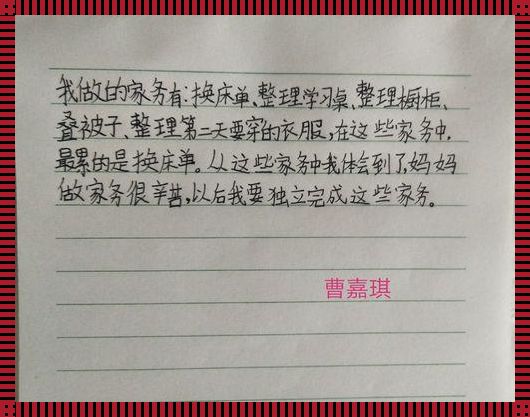 我做的家务有:换床单、整理学习桌、整理橱柜、
叠被子、整理第二天要穿的衣服,在这些家务中,
最累的是换床单。从这些家务中我体会到了,妈妈
做家务很辛苦,以后我要独立完成这些家务。
曹嘉琪